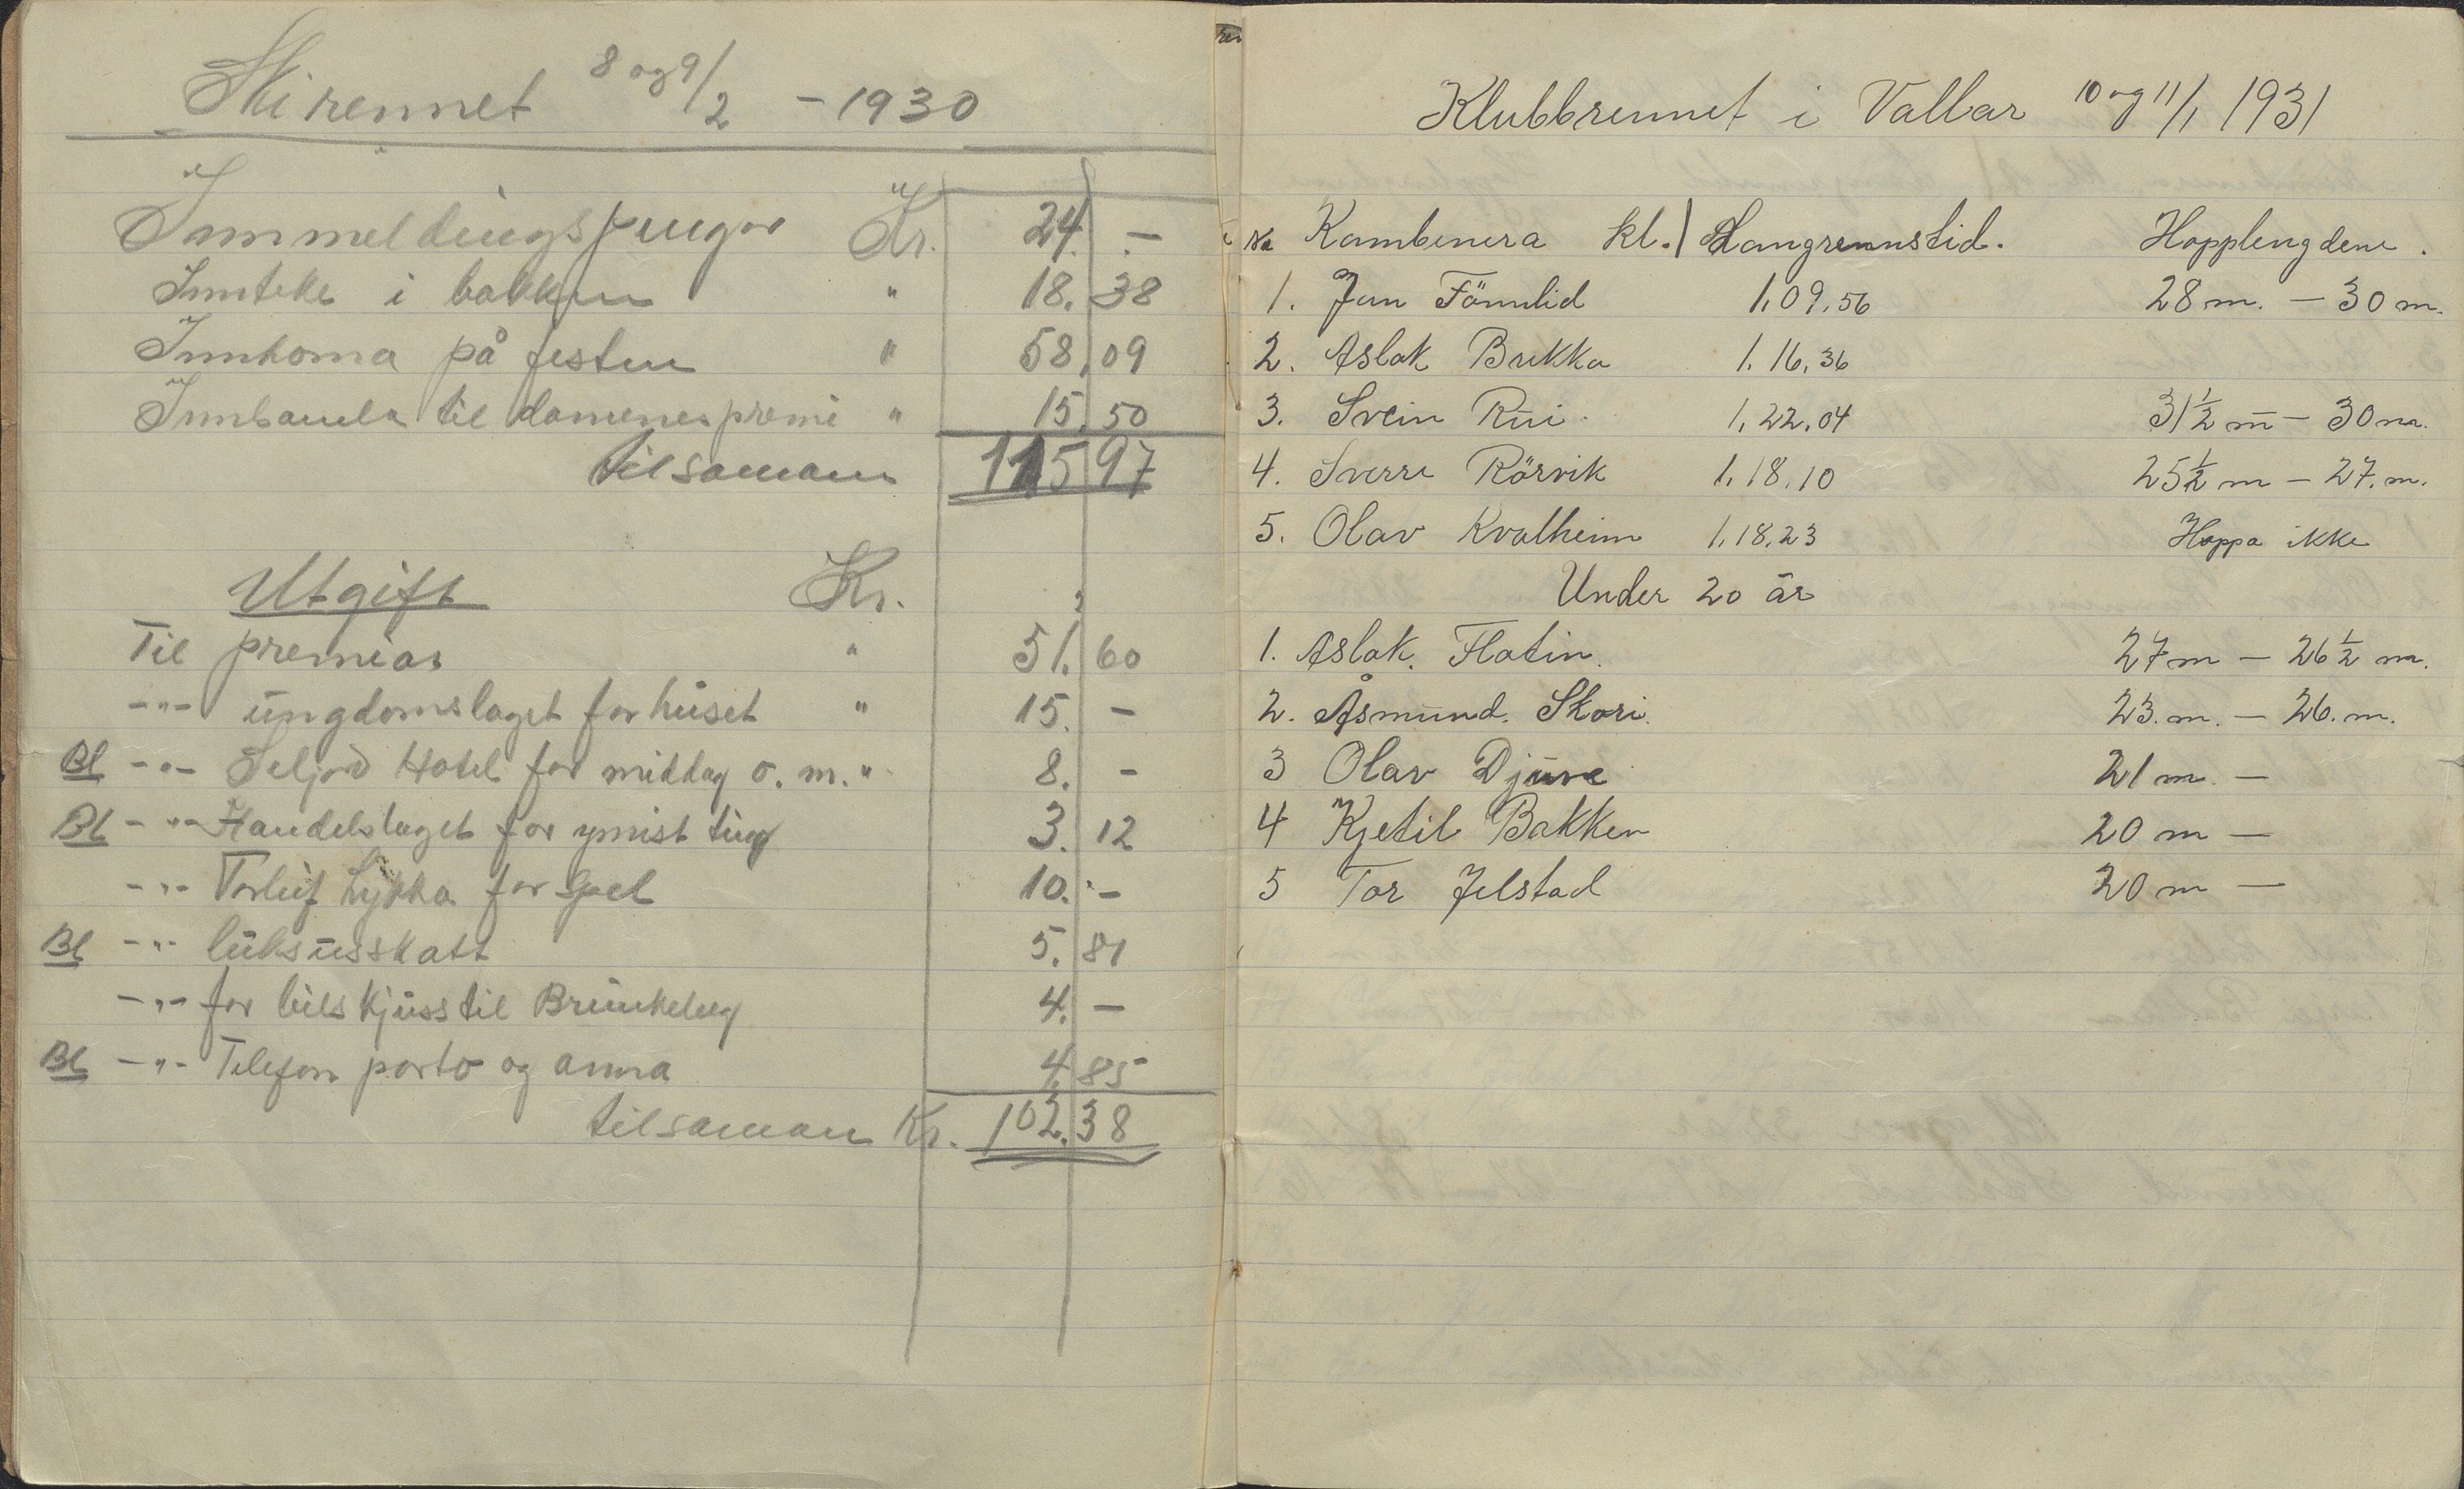 Skirennet 8 og 9/2 - 1930
Innmeldingspengar Kr. 24. -
Inntekt i bakken " 18. 38
Innkoma på festen " 58. 09
Innsamla til damenes premi " 15. 50
tilsaman 115 97
Utgift Kr.
Til premiar " 51. 60
-"- ungdomslaget for huset " 15. -
Bl -"- Seljord Hotel for middag o. m. " 8. -
Bl -"- Handelslaget for ymist ting 3. 12
-"- Torleif Lykka for spel 10. -
Bl -"- luksusskatt 5. 81
-"- for bilskjuss til Brunkeberg 4. -
Bl -"- Telefon porto og anna 4. 85
tilsaman Kr. 102. 38
Klubbrennet i Vallar 10 og 11/1 1931
Kombinera kl. 1 Langrennstid. Hopplengdene.
1. Jon Fönnlid 1,09,56 28 m. - 30 m.
2. Aslak Brekka 1. 16, 36
3. Svein Rui 1, 22, 04 31 1/2 m - 30 m.
4. Sverre Rörvik 1, 18, 10 25 1/2 m - 27. m.
5. Olav Kvalheim 1, 18, 23 Hoppa ikke
Under 20 år
1. Aslak. Flatin. 27 m - 26 1/2 m.
2. Åsmund. Skori. 23. m. - 26. m.
3 Olav Djuve 21 m. -
4 Kjetil Bakken 20 m -
5 Tor Jelstad 20 m -